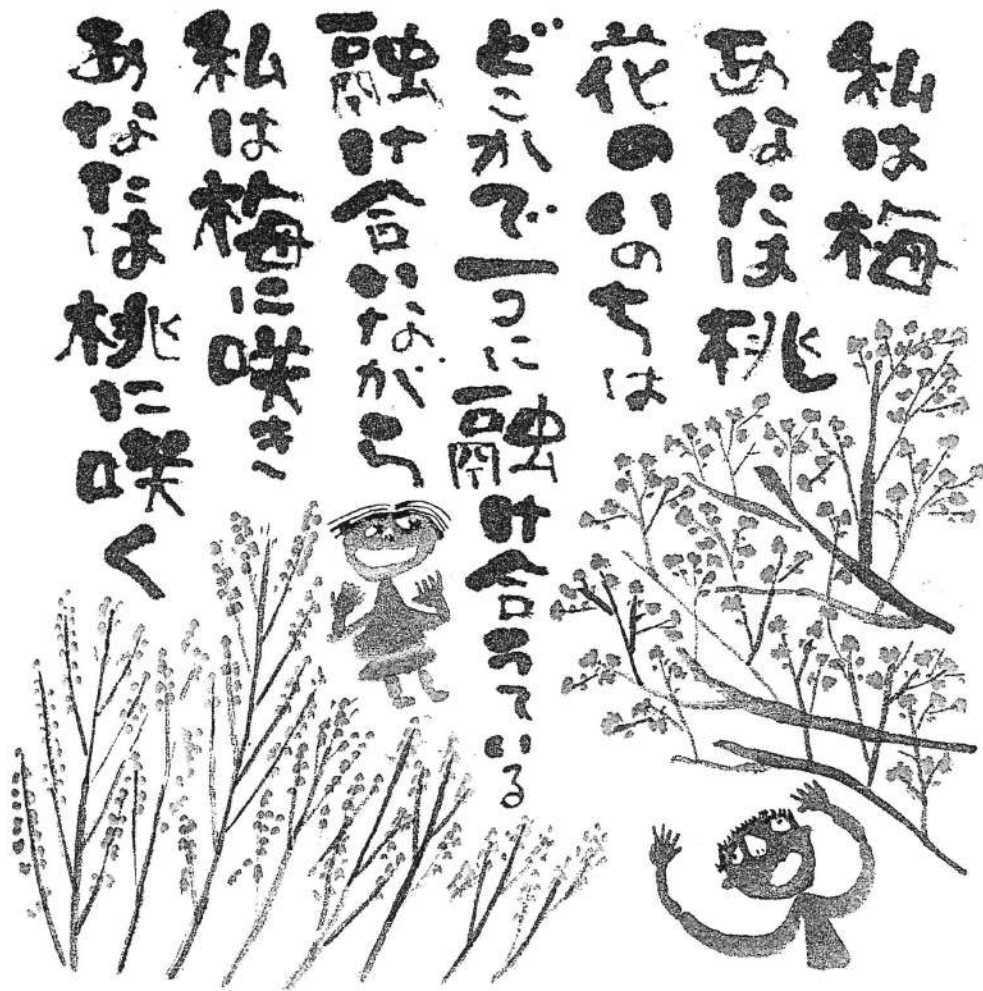 私は梅
あなたは桃
花のいのちは
どこかで一つに融け合うている
融け合いながら
私は梅に咲き
あなたは桃に咲く